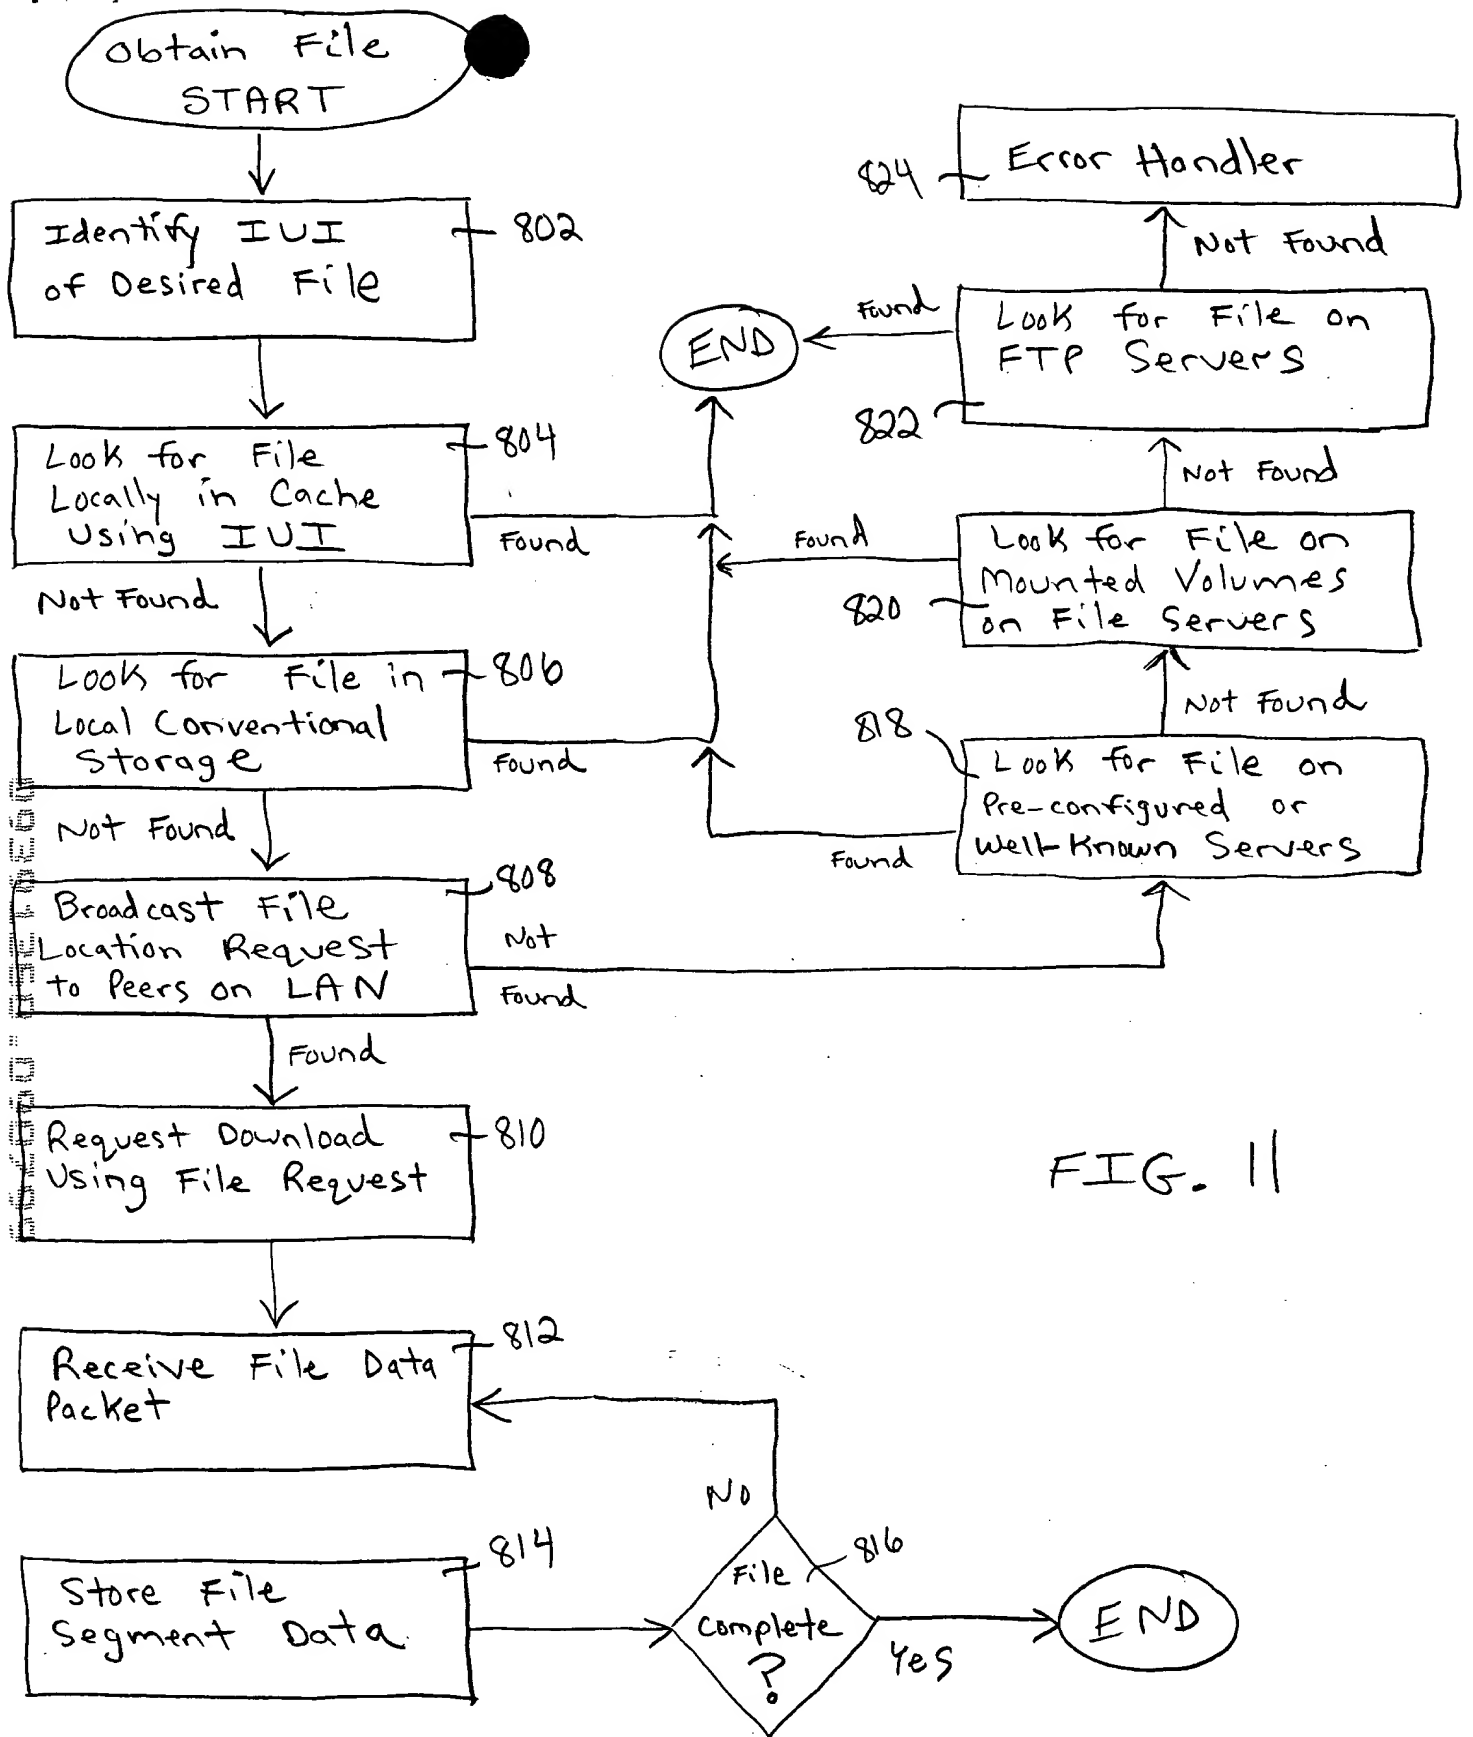 Obtain File
START
Identify IUI
of Desired File
802
Look for File
Locally in Cache
Using IUI
804
Found
Not Found
Look for File in
Local Conventional
Storage
806
Found
Not Found
Broadcast File
Location Request
to Peers on LAN
808
Not
Found
Found
Request Download
Using File Request
810
Receive File Data
Packet
812
Store File
Segment Data
814
No
File
Complete
?
816
Yes
END
END
Error Handler
824
Not Found
Found
Look for File on
FTP Servers
822
Not Found
Found
Look for File on
Mounted Volumes
on File Servers
820
Not Found
818
Look for File on
Pre-configured or
Well-Known Servers
Found
FIG. 11